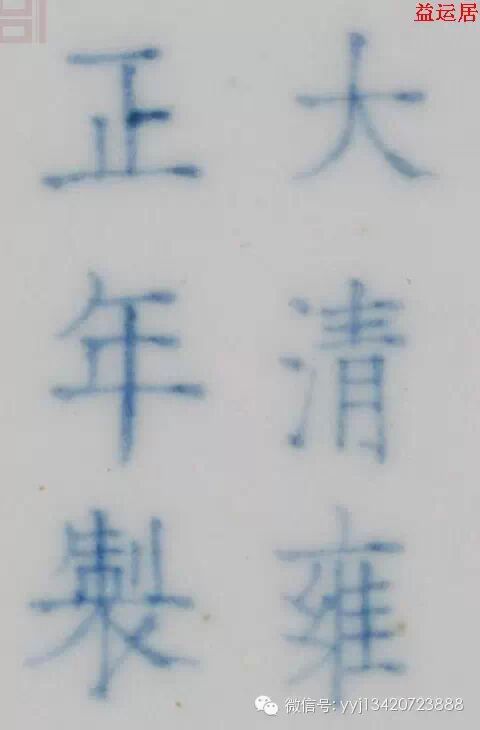 益运居
大清雍
正年製
微信号: yyj13420723888